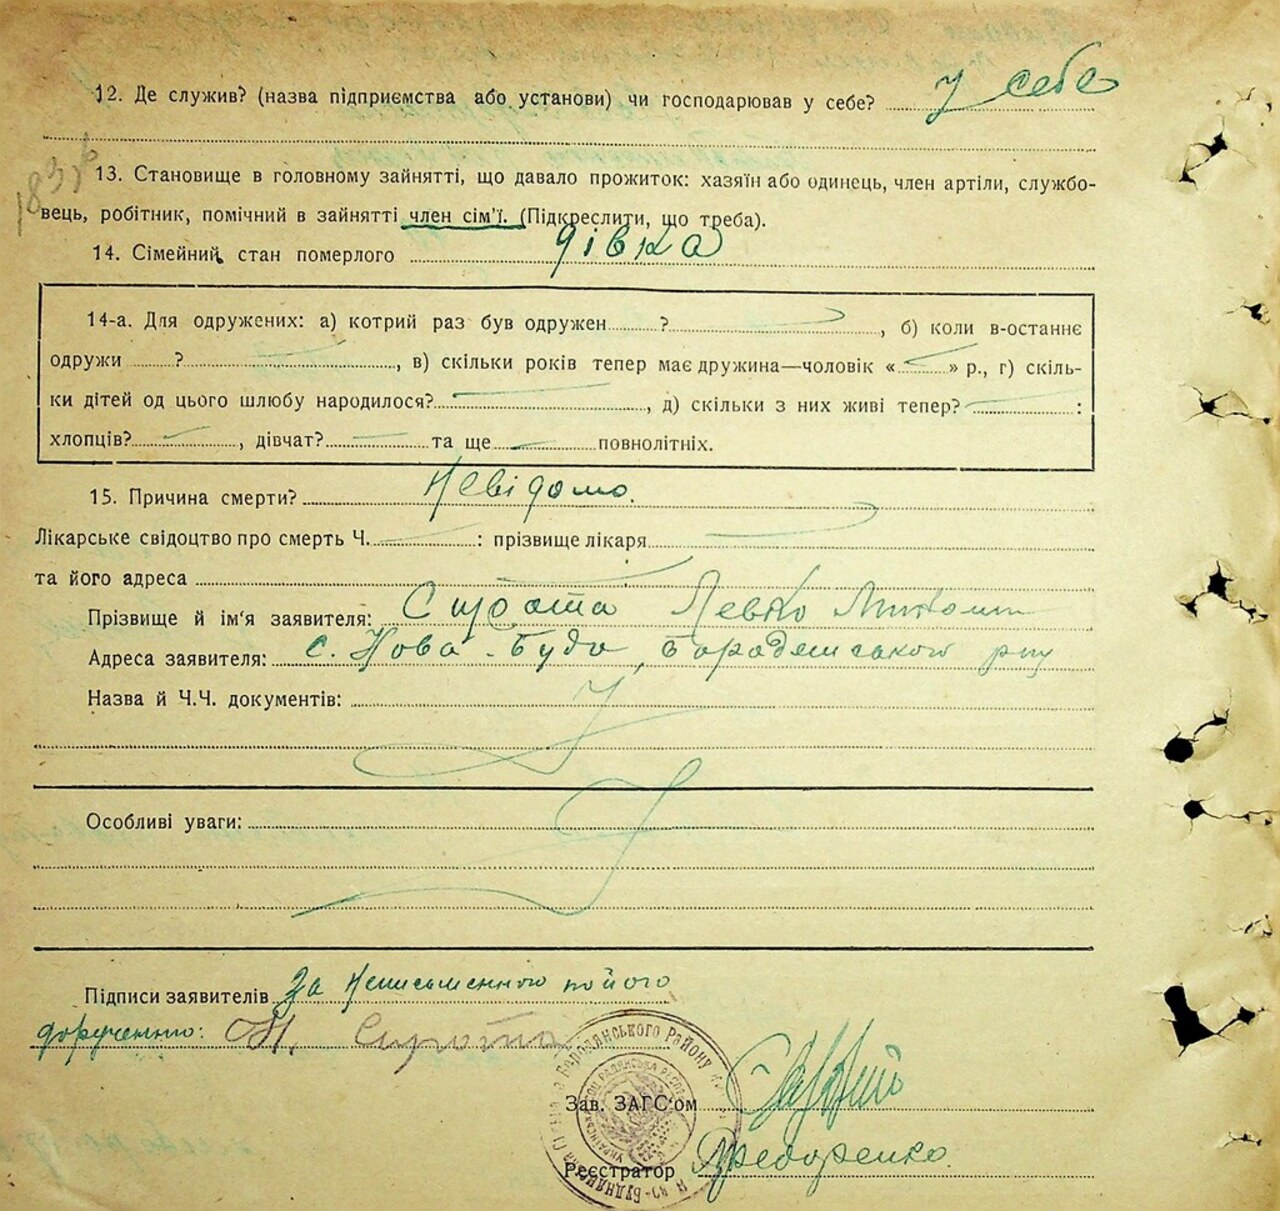 12. Де служив? (назва підприємства або установи) чи господарював у себе? у себе
13. Становище в головному зайнятті, що давало прожиток: хазяїн або одинець, член артіли, службо-
вець, робітник, помічний в зайнятті член сім'ї. (Підкреслити, що треба).
14. Сімейний стан померлого дівка
14-а. Для одружених: а) котрий раз був одружен ? , б) коли в-останнє
одружи ? , в) скільки років тепер має дружина—чоловік « » р., г) скіль-
ки дітей од цього шлюбу народилося? , д) скільки з них живі тепер? :
хлопців? , дівчат? та ще повнолітніх.
15. Причина смерти? Невідомо.
Лікарське свідоцтво про смерть Ч. : прізвище лікаря
та його адреса
Прізвище й ім'я заявителя: Сирота Левко
Адреса заявителя: с. Нова-Буда, Бородянського р-ну
Назва й Ч.Ч. документів:
Особливі уваги:
Підписи заявителів За неписьменного по його
дорученню: Сирота
Зав. ЗАГС'ом
Реєстратор Федоренко